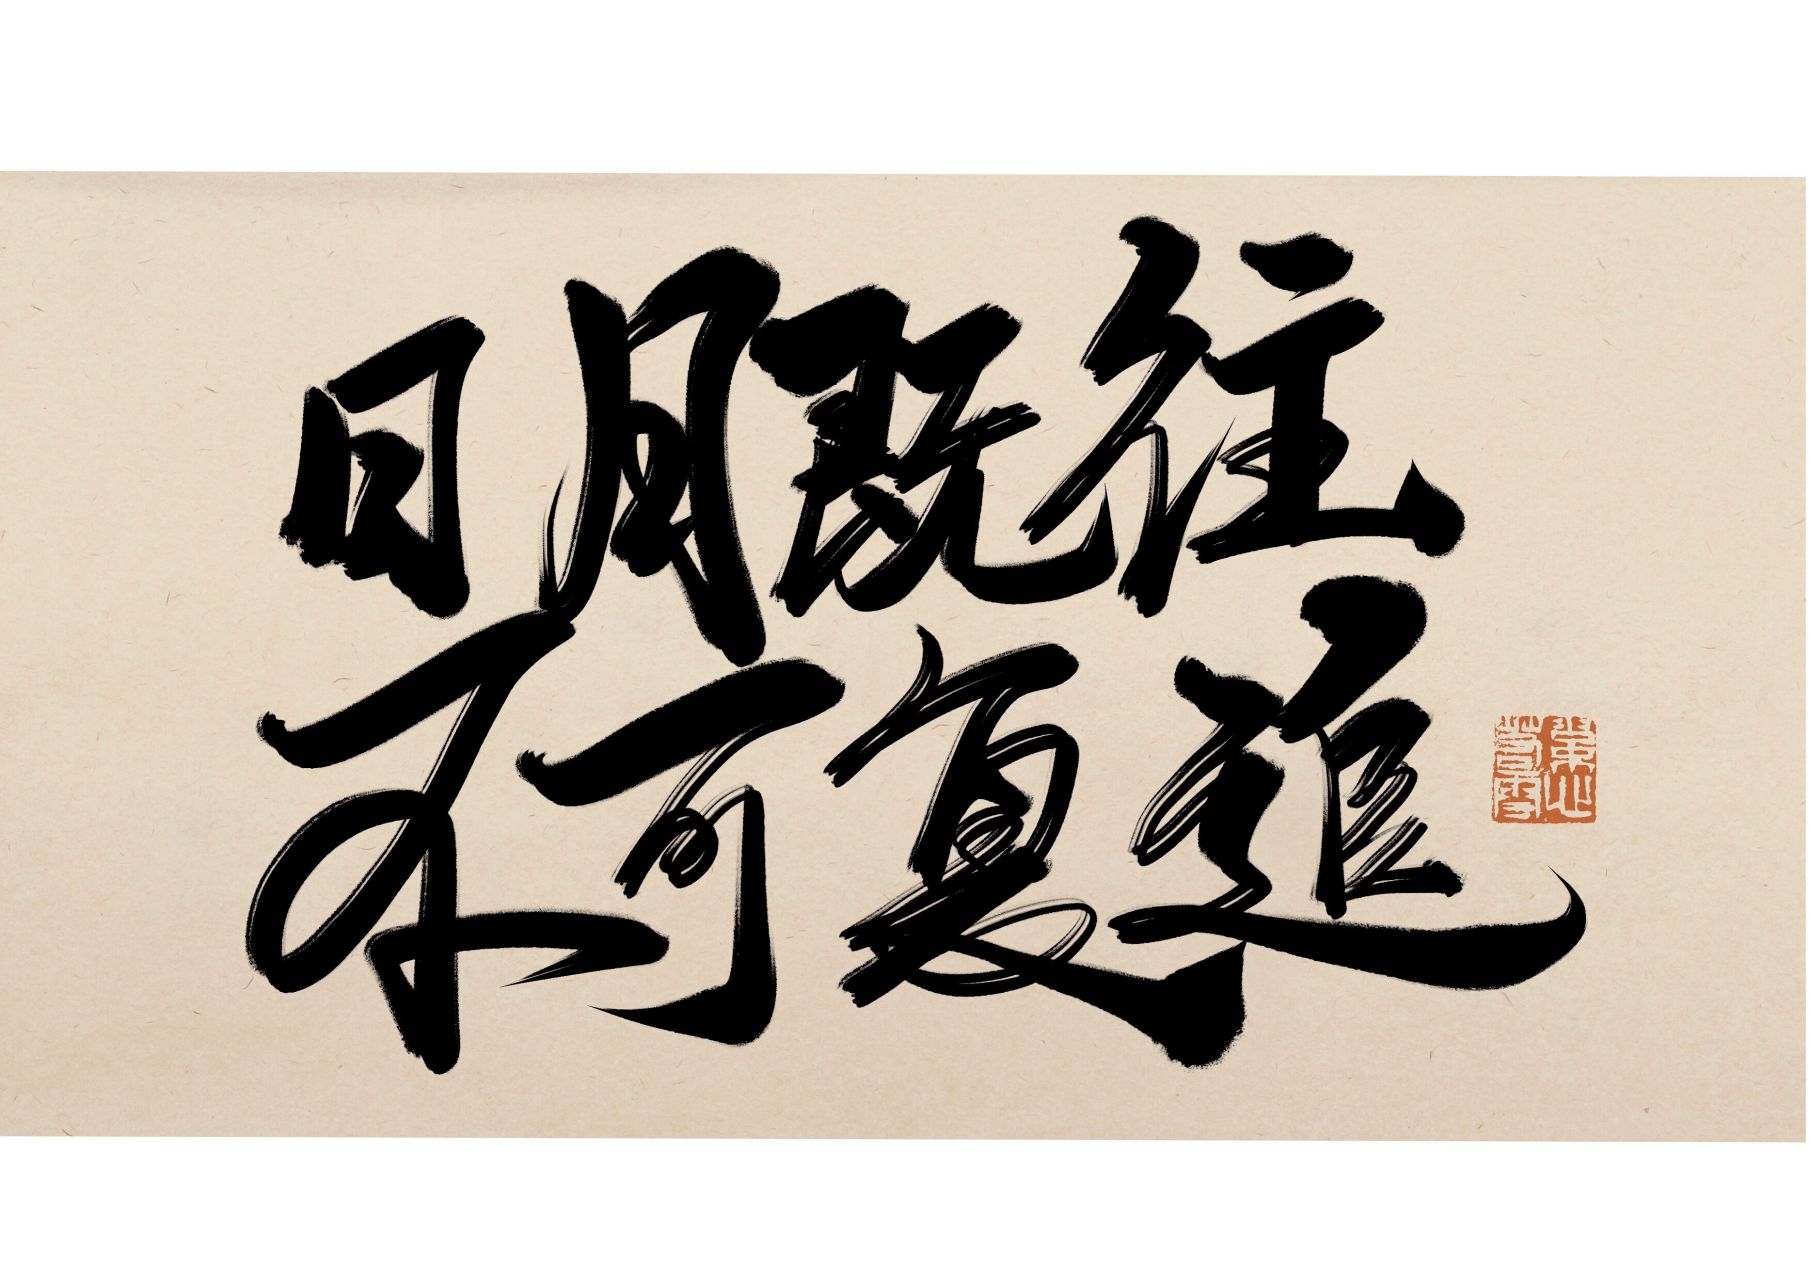 日月既往
不可复追